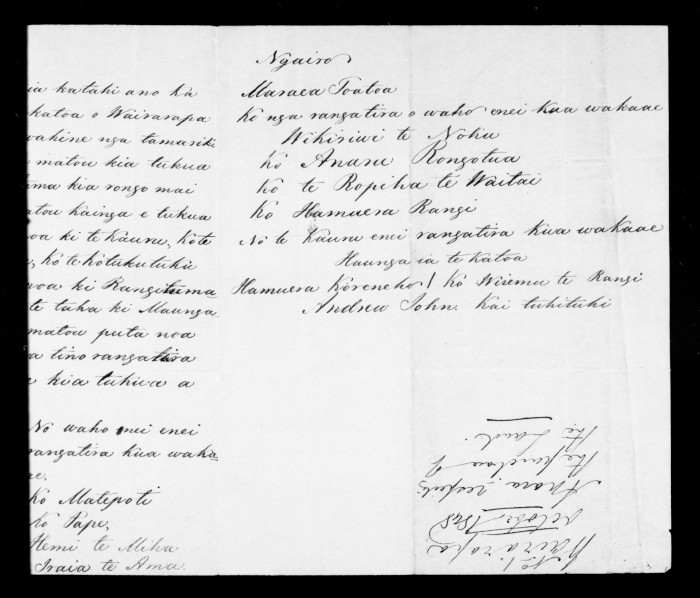 ia katahi ano ka
katoa o Wairarapa
wahine nga tamariki
matou kia tukua
tima kia rongo mai
atou kainga e tukua
noa ki te Kauru, kote
, ko te kotukutuku
noa ki Rangituma-
te taha ki Maunga
matou puta noa
a tino rangatira
a kia tukua a
No waho mei enei
rangatira kua waka-
ae.
Ko Matepoti
Ko Pape,
Hemi te Miha
Iraia te Ama.
Ngairo
Maraea Toatoa
Ko nga rangatira o waho enei kua wakaae
Wikiriwi te Nohu
Ko Anaru Rongotua
Ko te Ropiha te Waitai
Ko Hamuera Rangi
No te Kauru enei rangatira kua wakaae
Haunga ia te Katoa
Hamuera Koreneho! Ko Wiremu te Rangi
Andrew John. Kai tuhituhi
No 1.
Wairarapa
October 1848
Ngairo respecting
the purchase of
the Land.